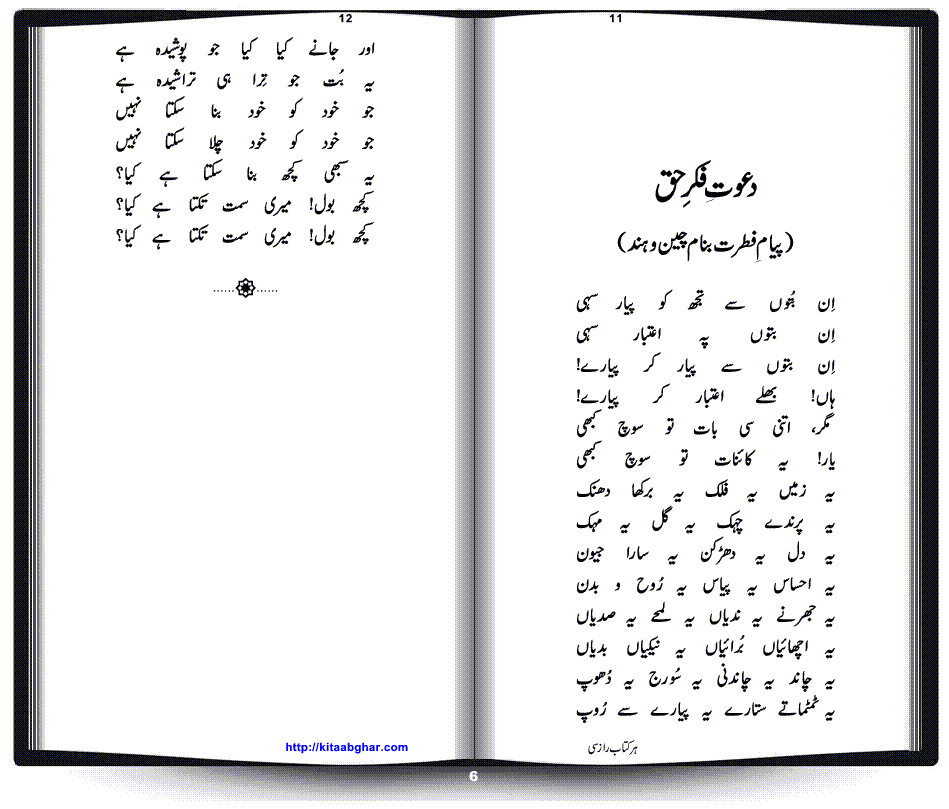 11
دعوتِ فکرِ حق
(پیامِ فطرت بنام چین و ہند)
اِن بُتوں سے تجھ کو پیار سہی
اِن بتوں پہ اعتبار سہی
اِن بتوں سے پیار کر پیارے!
ہاں! بھلے اعتبار کر پیارے!
مگر، اتنی سی بات تو سوچ کبھی
یار! یہ کائنات تو سوچ کبھی
یہ زمیں یہ فلک یہ برکھا دھنک
یہ پرندے چہک یہ گل یہ مہک
یہ دل یہ دھڑکن یہ سارا جیون
یہ احساس یہ پیاس یہ رُوح و بدن
یہ جھرنے یہ ندیاں یہ لمحے یہ صدیاں
یہ اچھائیاں بُرائیاں یہ نیکیاں بدیاں
یہ چاند یہ چاندنی یہ سُورج یہ دُھوپ
یہ ٹمٹماتے ستارے یہ پیارے سے رُوپ
ہر کتاب راز سی
12
اور جانے کیا کیا جو پوشیدہ ہے
یہ بُت جو تِرا ہی تراشیدہ ہے
جو خود کو خود بنا سکتا نہیں
جو خود کو خود چلا سکتا نہیں
یہ سبھی کچھ بنا سکتا ہے کیا؟
کچھ بول! میری سمت تکتا ہے کیا؟
کچھ بول! میری سمت تکتا ہے کیا؟
http://kitaabghar.com
6